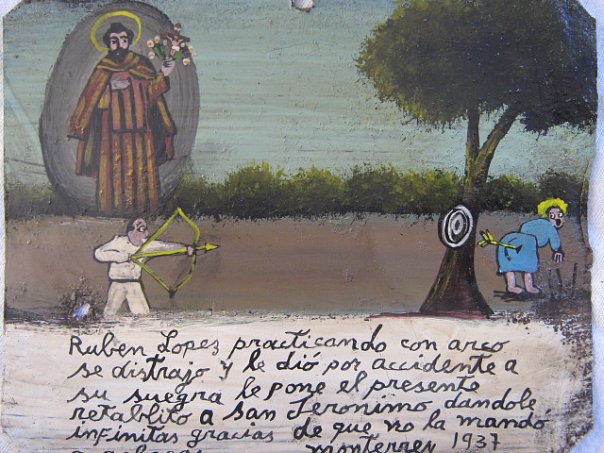 Ruben Lopes practicando con arco
se distrajo y le dió por accidente a
su suegra le pone el presente
retablito a San Jeronimo dandole
infinitas gracias de que no la mandó
Monterrey 1937